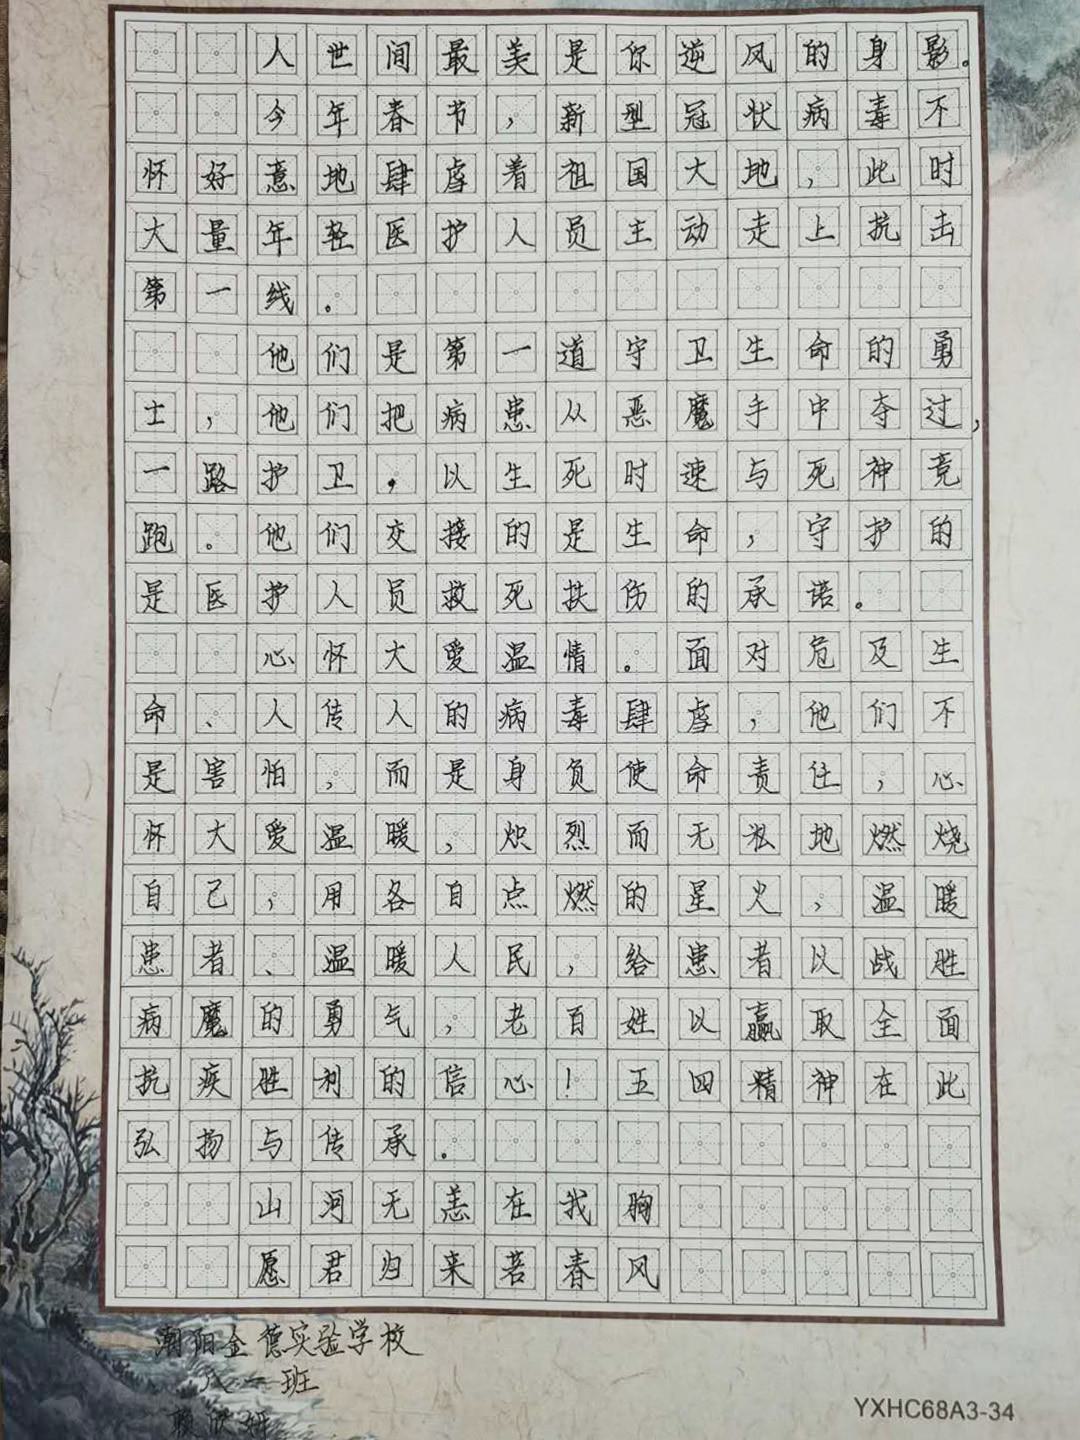 人世间最美是你逆风的身影。
今年春节，新型冠状病毒不
怀好意地肆虐着祖国大地，此时
大量年轻医护人员主动走上抗击
第一线。
他们是第一道守卫生命的勇
士，他们把病患从恶魔手中夺过，
一路护卫，以生死时速与死神竞
跑。他们交接的是生命，守护的
是医护人员救死扶伤的承诺。
心怀大爱温情。面对危及生
命、人传人的病毒肆虐，他们不
是害怕，而是身负使命责任，心
怀大爱温暖，炽烈而无私地燃烧
自己，用各自点燃的星火，温暖
患者、温暖人民，给患者以战胜
病魔的勇气，老百姓以赢取全面
抗疾胜利的信心！五四精神在此
弘扬与传承。
山河无恙在我胸
愿君归来若春风
潮阳金德实验学校
八一班
赖欣妍
YXHC68A3-34